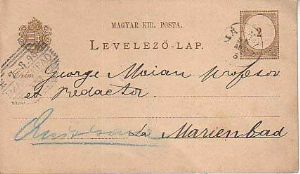 MAGYAR KIR. POSTA.
LEVELEZŐ-LAP.
2
George Moian Profesor
ed Redactor
in Marienbad